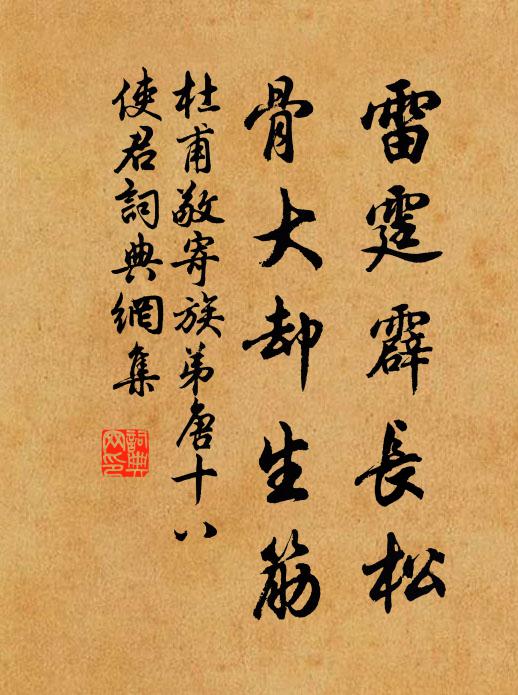 雷霆霹長松
骨大却生筋
杜甫敬寄族弟唐十八
使君詞典網集
詞典
网印